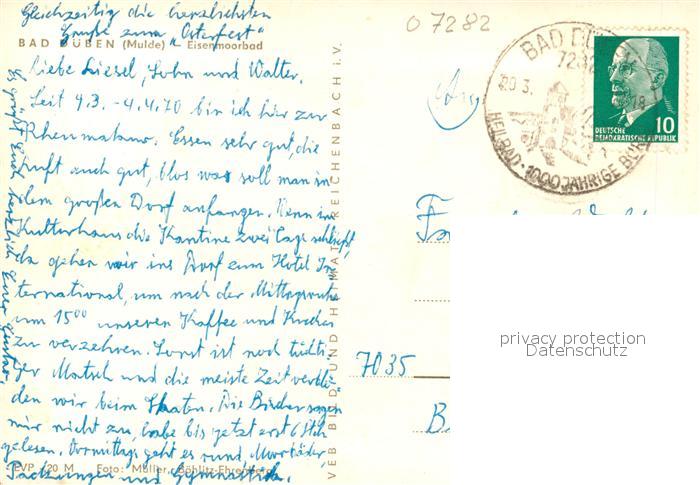 Gleichzeitig die herzlichsten
Grüße zum "Osterfest"
BAD DÜBEN (Mulde) Eisenmoorbad
Liebe Liesel, Sohn und Walter.
Seit 4.3. - 4.4.70 bin ich hier zur
Essen sehr gut, die
Luft auch gut, blos was soll man in
dem großen Dorf anfangen. Wenn im
Kulturhaus die Kantine zwei Tage schließt,
da gehen wir ins Dorf zum Hotel In-
ternational, um nach der Mittagsruhe
um 15⁰⁰ unseren Kaffee und Kuchen
zu verzehren. Sonst ist noch tüchti-
ger Matsch und die meiste Zeit
den wir beim Skaten. Die Bücher sagen
mir nicht zu, habe bis jetzt erst 6 Stck
gelesen. Vormittags geht es rund Moorbäder,
Packungen und Gymnastik.
Es grüßt Euch herzlich Euer Gustav.
EVP 20 M Foto: Müller, Böhlitz-Ehrenberg
VEB BILD UND HEIMAT REICHENBACH i. V.
O 7282
BAD DÜBEN
7282
20.3.
18
HEILBAD · 1000 JÄHRIGE BURG
10
DEUTSCHE
DEMOKRATISCHE REPUBLIK
7035
privacy protection
Datenschutz